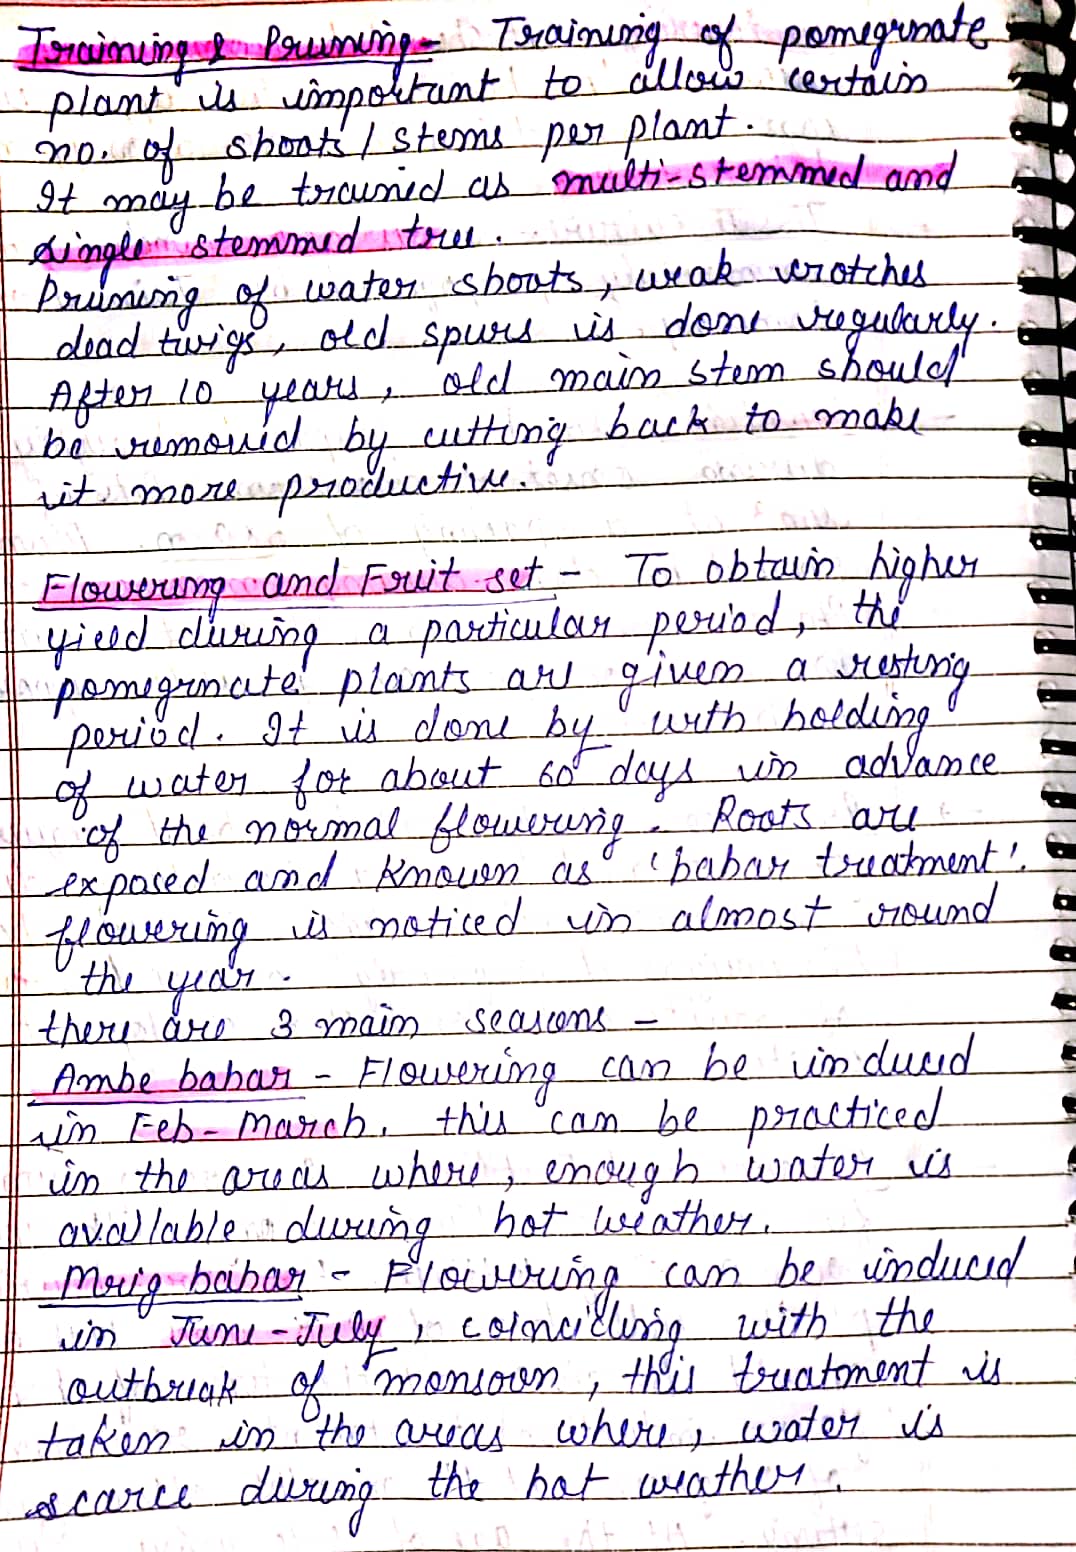 Training & Pruning - Training of pomegrnate
plant is important to allow certain
no. of shoots / stems per plant.
It may be trained as multi-stemmed and
single stemmed tree.
Pruning of water shoots, weak crotches
dead twigs, old spurs is done regularly.
After 10 years, old main stem should
be removed by cutting back to make
it more productive.
Flowering and Fruit set - To obtain higher
yield during a particular period, the
pomegrnate plants are given a resting
period. It is done by with holding
of water for about 60 days in advance
of the normal flowering. Roots are
exposed and known as 'bahar treatment'.
flowering is noticed in almost round
the year.
there are 3 main seasons -
Ambe bahar - Flowering can be induced
in Feb-March. this can be practiced
in the areas where, enough water is
available during hot weather.
Mrig bahar - Flowering can be induced
in June-July, coinciding with the
outbreak of monsoon, this treatment is
taken in the areas where, water is
scarce during the hot weather.